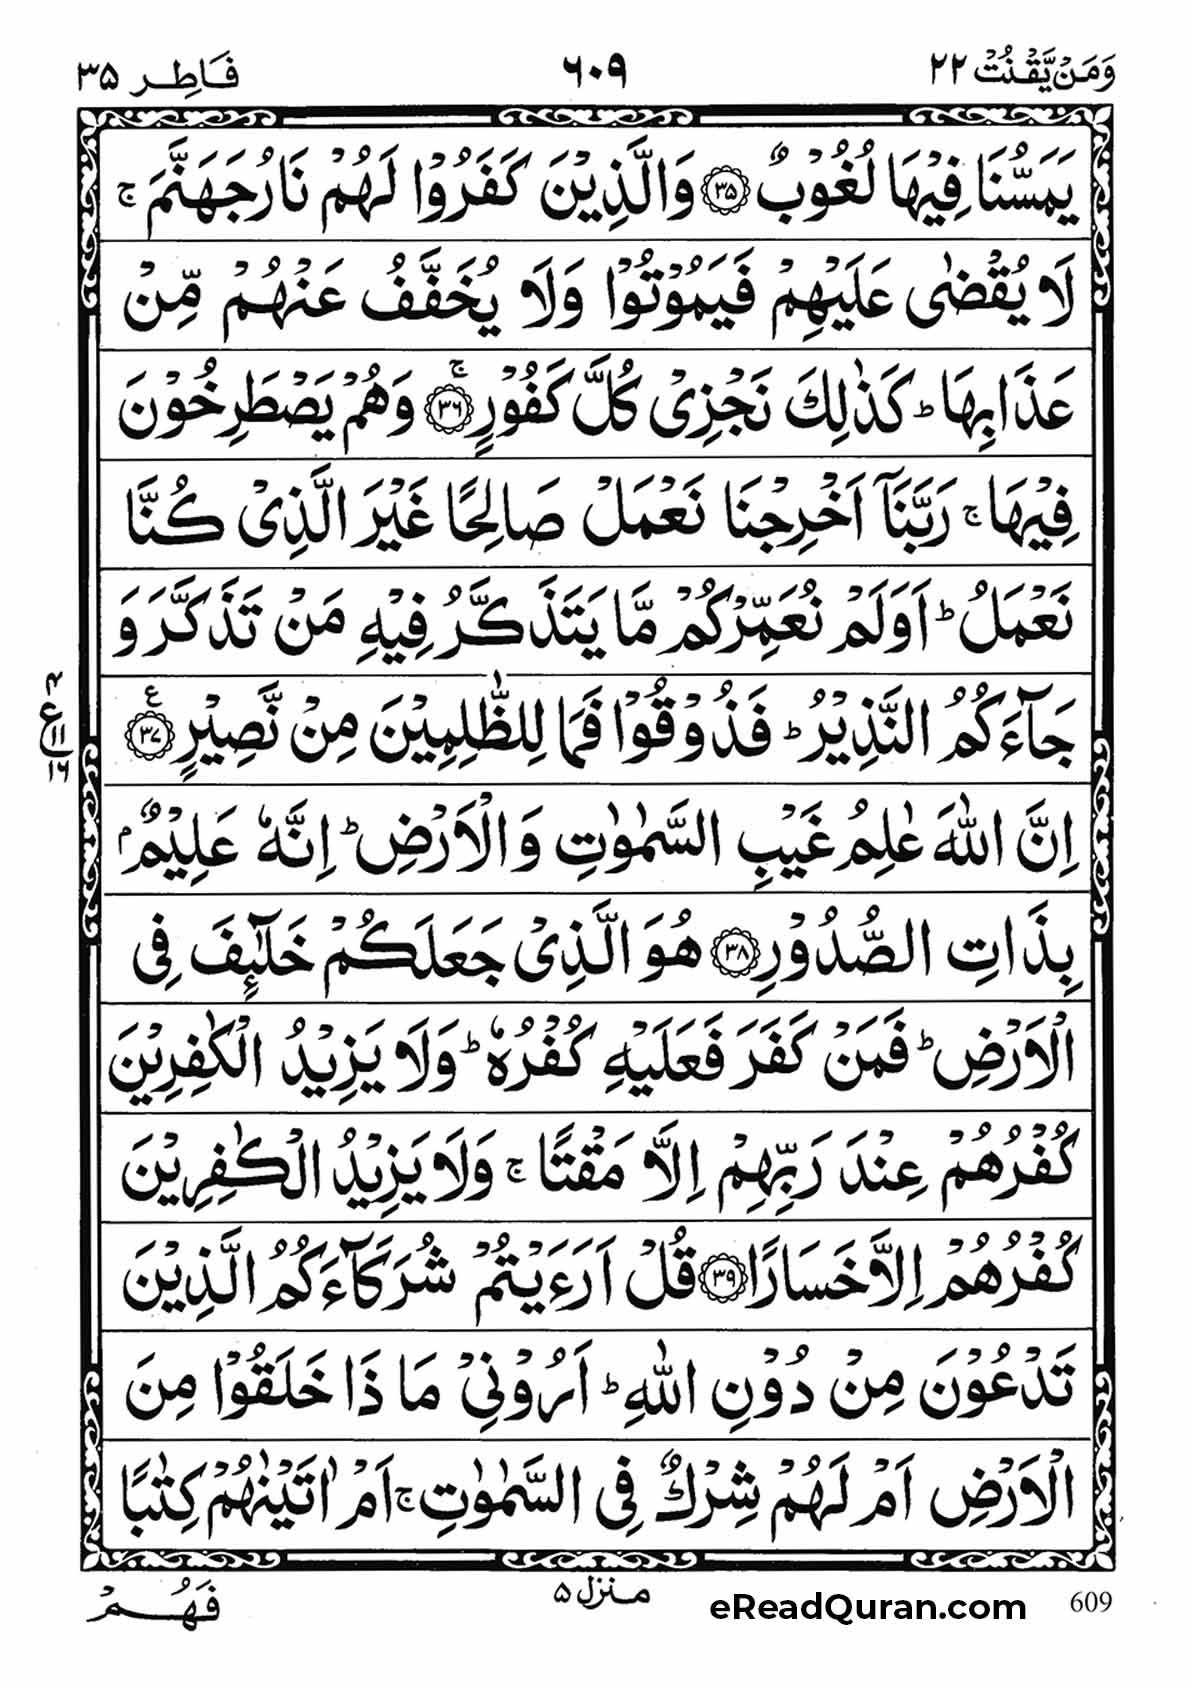 وَمَنْ يَّقْنُتْ ٢٢
٦٠٩
فَاطِر ٣٥
يَمَسُّنَا فِيْهَا لُغُوْبٌ ﴿٣٥﴾ وَالَّذِيْنَ كَفَرُوْا لَهُمْ نَارُ جَهَنَّمَ ۚ
لَا يُقْضٰى عَلَيْهِمْ فَيَمُوْتُوْا وَلَا يُخَفَّفُ عَنْهُمْ مِّنْ
عَذَابِهَا ؕ كَذٰلِكَ نَجْزِىْ كُلَّ كَفُوْرٍ ﴿٣٦﴾ۚ وَهُمْ يَصْطَرِخُوْنَ
فِيْهَا ۚ رَبَّنَآ اَخْرِجْنَا نَعْمَلْ صَالِحًا غَيْرَ الَّذِىْ كُنَّا
نَعْمَلُ ؕ اَوَلَمْ نُعَمِّرْكُمْ مَّا يَتَذَكَّرُ فِيْهِ مَنْ تَذَكَّرَ وَ
جَآءَكُمُ النَّذِيْرُ ؕ فَذُوْقُوْا فَمَا لِلظّٰلِمِيْنَ مِنْ نَّصِيْرٍ ﴿٣٧﴾ ع
٤
ع ١١
١٦
اِنَّ اللّٰهَ عٰلِمُ غَيْبِ السَّمٰوٰتِ وَالْاَرْضِ ؕ اِنَّهٗ عَلِيْمٌۢ
بِذَاتِ الصُّدُوْرِ ﴿٣٨﴾ هُوَ الَّذِىْ جَعَلَكُمْ خَلٰٓئِفَ فِى
الْاَرْضِ ؕ فَمَنْ كَفَرَ فَعَلَيْهِ كُفْرُهٗ ؕ وَلَا يَزِيْدُ الْكٰفِرِيْنَ
كُفْرُهُمْ عِنْدَ رَبِّهِمْ اِلَّا مَقْتًا ۚ وَلَا يَزِيْدُ الْكٰفِرِيْنَ
كُفْرُهُمْ اِلَّا خَسَارًا ﴿٣٩﴾ قُلْ اَرَءَيْتُمْ شُرَكَآءَكُمُ الَّذِيْنَ
تَدْعُوْنَ مِنْ دُوْنِ اللّٰهِ ؕ اَرُوْنِىْ مَا ذَا خَلَقُوْا مِنَ
الْاَرْضِ اَمْ لَهُمْ شِرْكٌ فِى السَّمٰوٰتِ ۚ اَمْ اٰتَيْنٰهُمْ كِتٰبًا
فَهُمْ
منزل ٥
eReadQuran.com
609